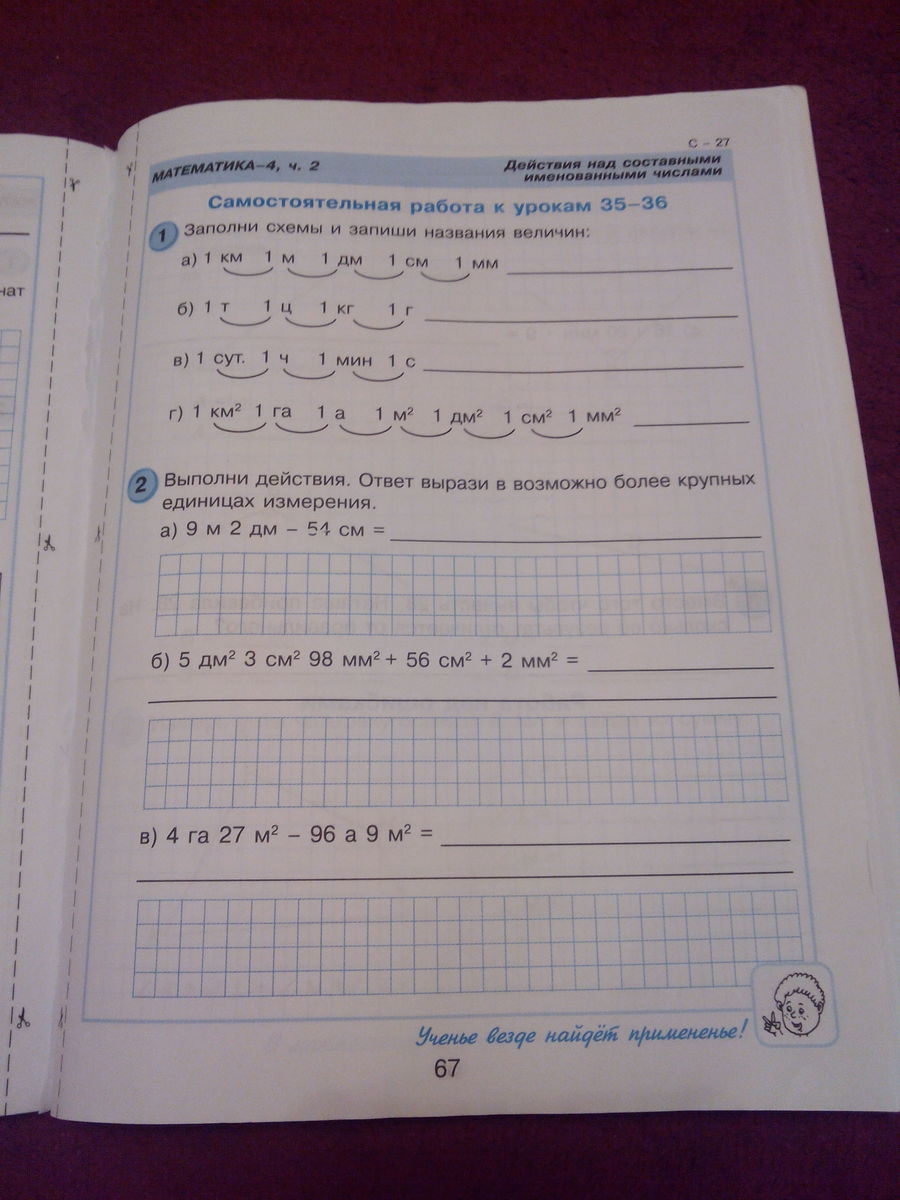 нат
С – 27
МАТЕМАТИКА–4, ч. 2 Действия над составными
именованными числами
Самостоятельная работа к урокам 35–36
1 Заполни схемы и запиши названия величин:
а) 1 км 1 м 1 дм 1 см 1 мм
б) 1 т 1 ц 1 кг 1 г
в) 1 сут. 1 ч 1 мин 1 с
г) 1 км² 1 га 1 а 1 м² 1 дм² 1 см² 1 мм²
2 Выполни действия. Ответ вырази в возможно более крупных
единицах измерения.
а) 9 м 2 дм – 54 см =
б) 5 дм² 3 см² 98 мм² + 56 см² + 2 мм² =
в) 4 га 27 м² – 96 а 9 м² =
Ученье везде найдёт примененье!
67